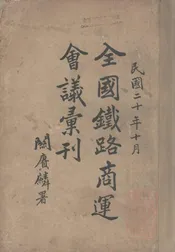 民國二十年十月
全國鐵路商運
會議彙刊
關賡麟署